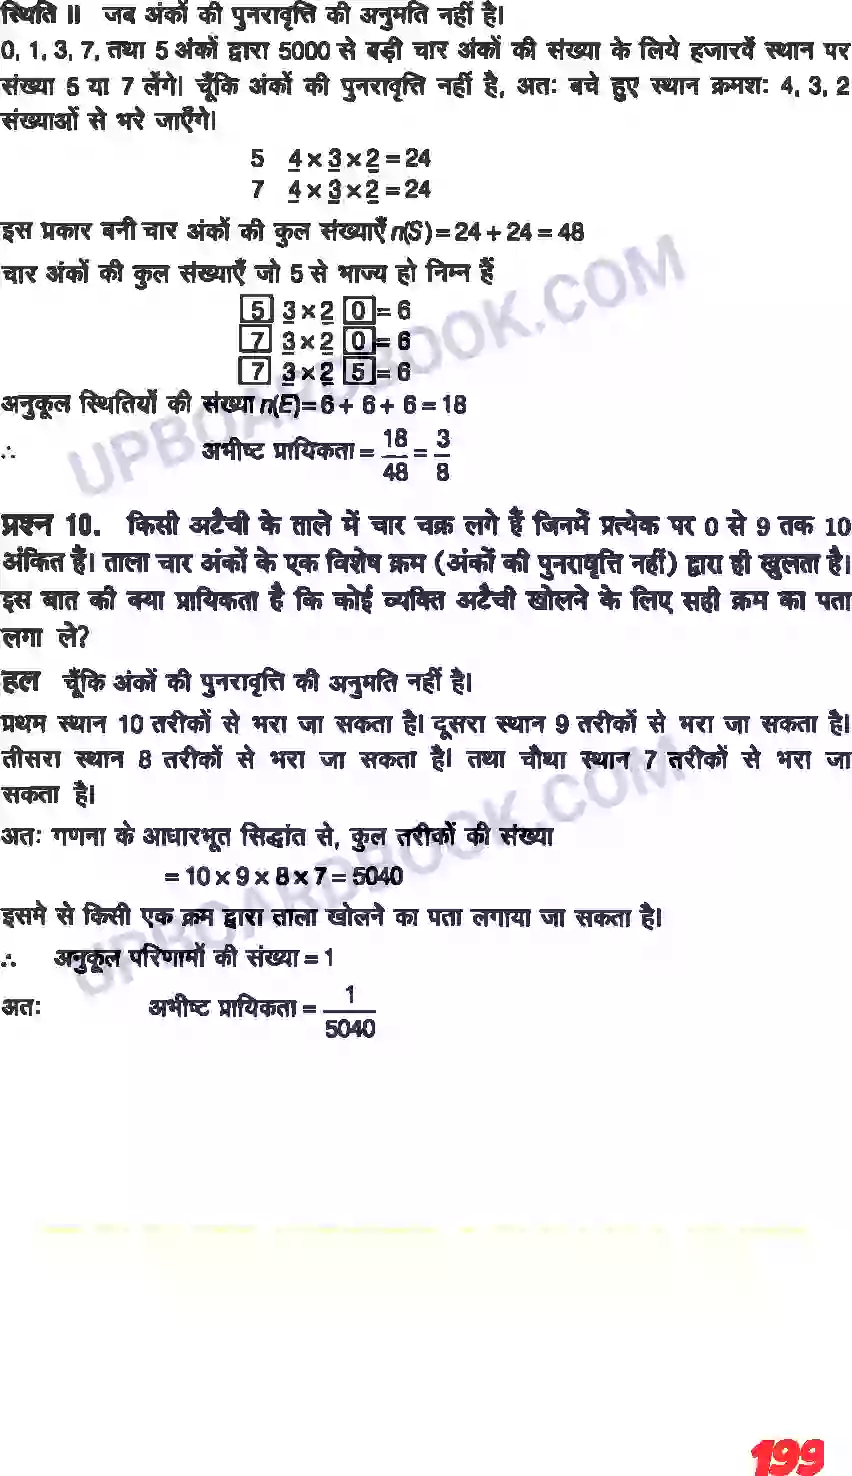 स्थिति II जब अंकों की पुनरावृत्ति की अनुमति नहीं है।
0, 1, 3, 7, तथा 5 अंकों द्वारा 5000 से बड़ी चार अंकों की संख्या के लिये हजारवें स्थान पर
संख्या 5 या 7 लेंगे। चूँकि अंकों की पुनरावृत्ति नहीं है, अतः बचे हुए स्थान क्रमशः 4, 3, 2
संख्याओं से भरे जाएँगे।
5 4 × 3 × 2 = 24
7 4 × 3 × 2 = 24
इस प्रकार बनी चार अंकों की कुल संख्याएँ n(S) = 24 + 24 = 48
चार अंकों की कुल संख्याएँ जो 5 से भाज्य हो निम्न हैं
5 3 × 2 0 = 6
7 3 × 2 0 = 6
7 3 × 2 5 = 6
अनुकूल स्थितियों की संख्या n(E) = 6 + 6 + 6 = 18
∴ अभीष्ट प्रायिकता = 18/48 = 3/8
प्रश्न 10. किसी अटैची के ताले में चार चक्र लगे हैं जिनमें प्रत्येक पर 0 से 9 तक 10
अंकित हैं। ताला चार अंकों के एक विशेष क्रम (अंकों की पुनरावृत्ति नहीं) द्वारा ही खुलता है।
इस बात की क्या प्रायिकता है कि कोई व्यक्ति अटैची खोलने के लिए सही क्रम का पता
लगा ले?
हल चूँकि अंकों की पुनरावृत्ति की अनुमति नहीं है।
प्रथम स्थान 10 तरीकों से भरा जा सकता है। दूसरा स्थान 9 तरीकों से भरा जा सकता है।
तीसरा स्थान 8 तरीकों से भरा जा सकता है। तथा चौथा स्थान 7 तरीकों से भरा जा
सकता है।
अतः गणना के आधारभूत सिद्धांत से, कुल तरीकों की संख्या
= 10 × 9 × 8 × 7 = 5040
इसमे से किसी एक क्रम द्वारा ताला खोलने का पता लगाया जा सकता है।
∴ अनुकूल परिणामों की संख्या = 1
अतः अभीष्ट प्रायिकता = 1/5040
UPBOARDBOOK.COM
UPBOARDBOOK.COM
199